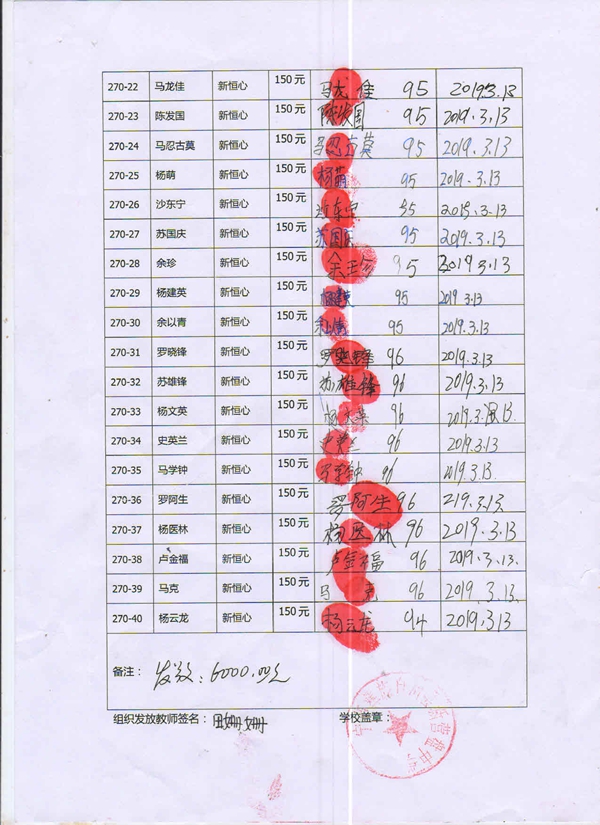 270-22 马龙佳 新恒心 150元 马龙佳 95 2019.3.13
270-23 陈发国 新恒心 150元 陈发国 95 2019.3.13
270-24 马忍古莫 新恒心 150元 马忍古莫 95 2019.3.13
270-25 杨萌 新恒心 150元 杨萌 95 2019.3.13
270-26 沙东宁 新恒心 150元 沙东宁 95 2019.3.13
270-27 苏国庆 新恒心 150元 苏国庆 95 2019.3.13
270-28 余珍 新恒心 150元 95 2019.3.13
270-29 杨建英 新恒心 150元 杨建英 95 2019 3.13
270-30 余以青 新恒心 150元 95 2019.3.13
270-31 罗晓锋 新恒心 150元 罗晓锋 96 2019.3.13
270-32 苏雄锋 新恒心 150元 苏雄锋 96 2019.3.13
270-33 杨文英 新恒心 150元 杨文英 96 2019.3.13
270-34 史英兰 新恒心 150元 史英兰 96 2019.3.13
270-35 马学钟 新恒心 150元 马学钟 96 2019.3.13
270-36 罗阿生 新恒心 150元 罗阿生 96 219.3.13
270-37 杨医林 新恒心 150元 杨医林 96 2019.3.13
270-38 卢金福 新恒心 150元 卢金福 96 2019.3.13.
270-39 马克 新恒心 150元 马克 96 2019.3.13.
270-40 杨云龙 新恒心 150元 杨云龙 94 2019.3.13
备注： 发放：6000.00元
组织发放教师签名： 田姗姗 学校盖章：